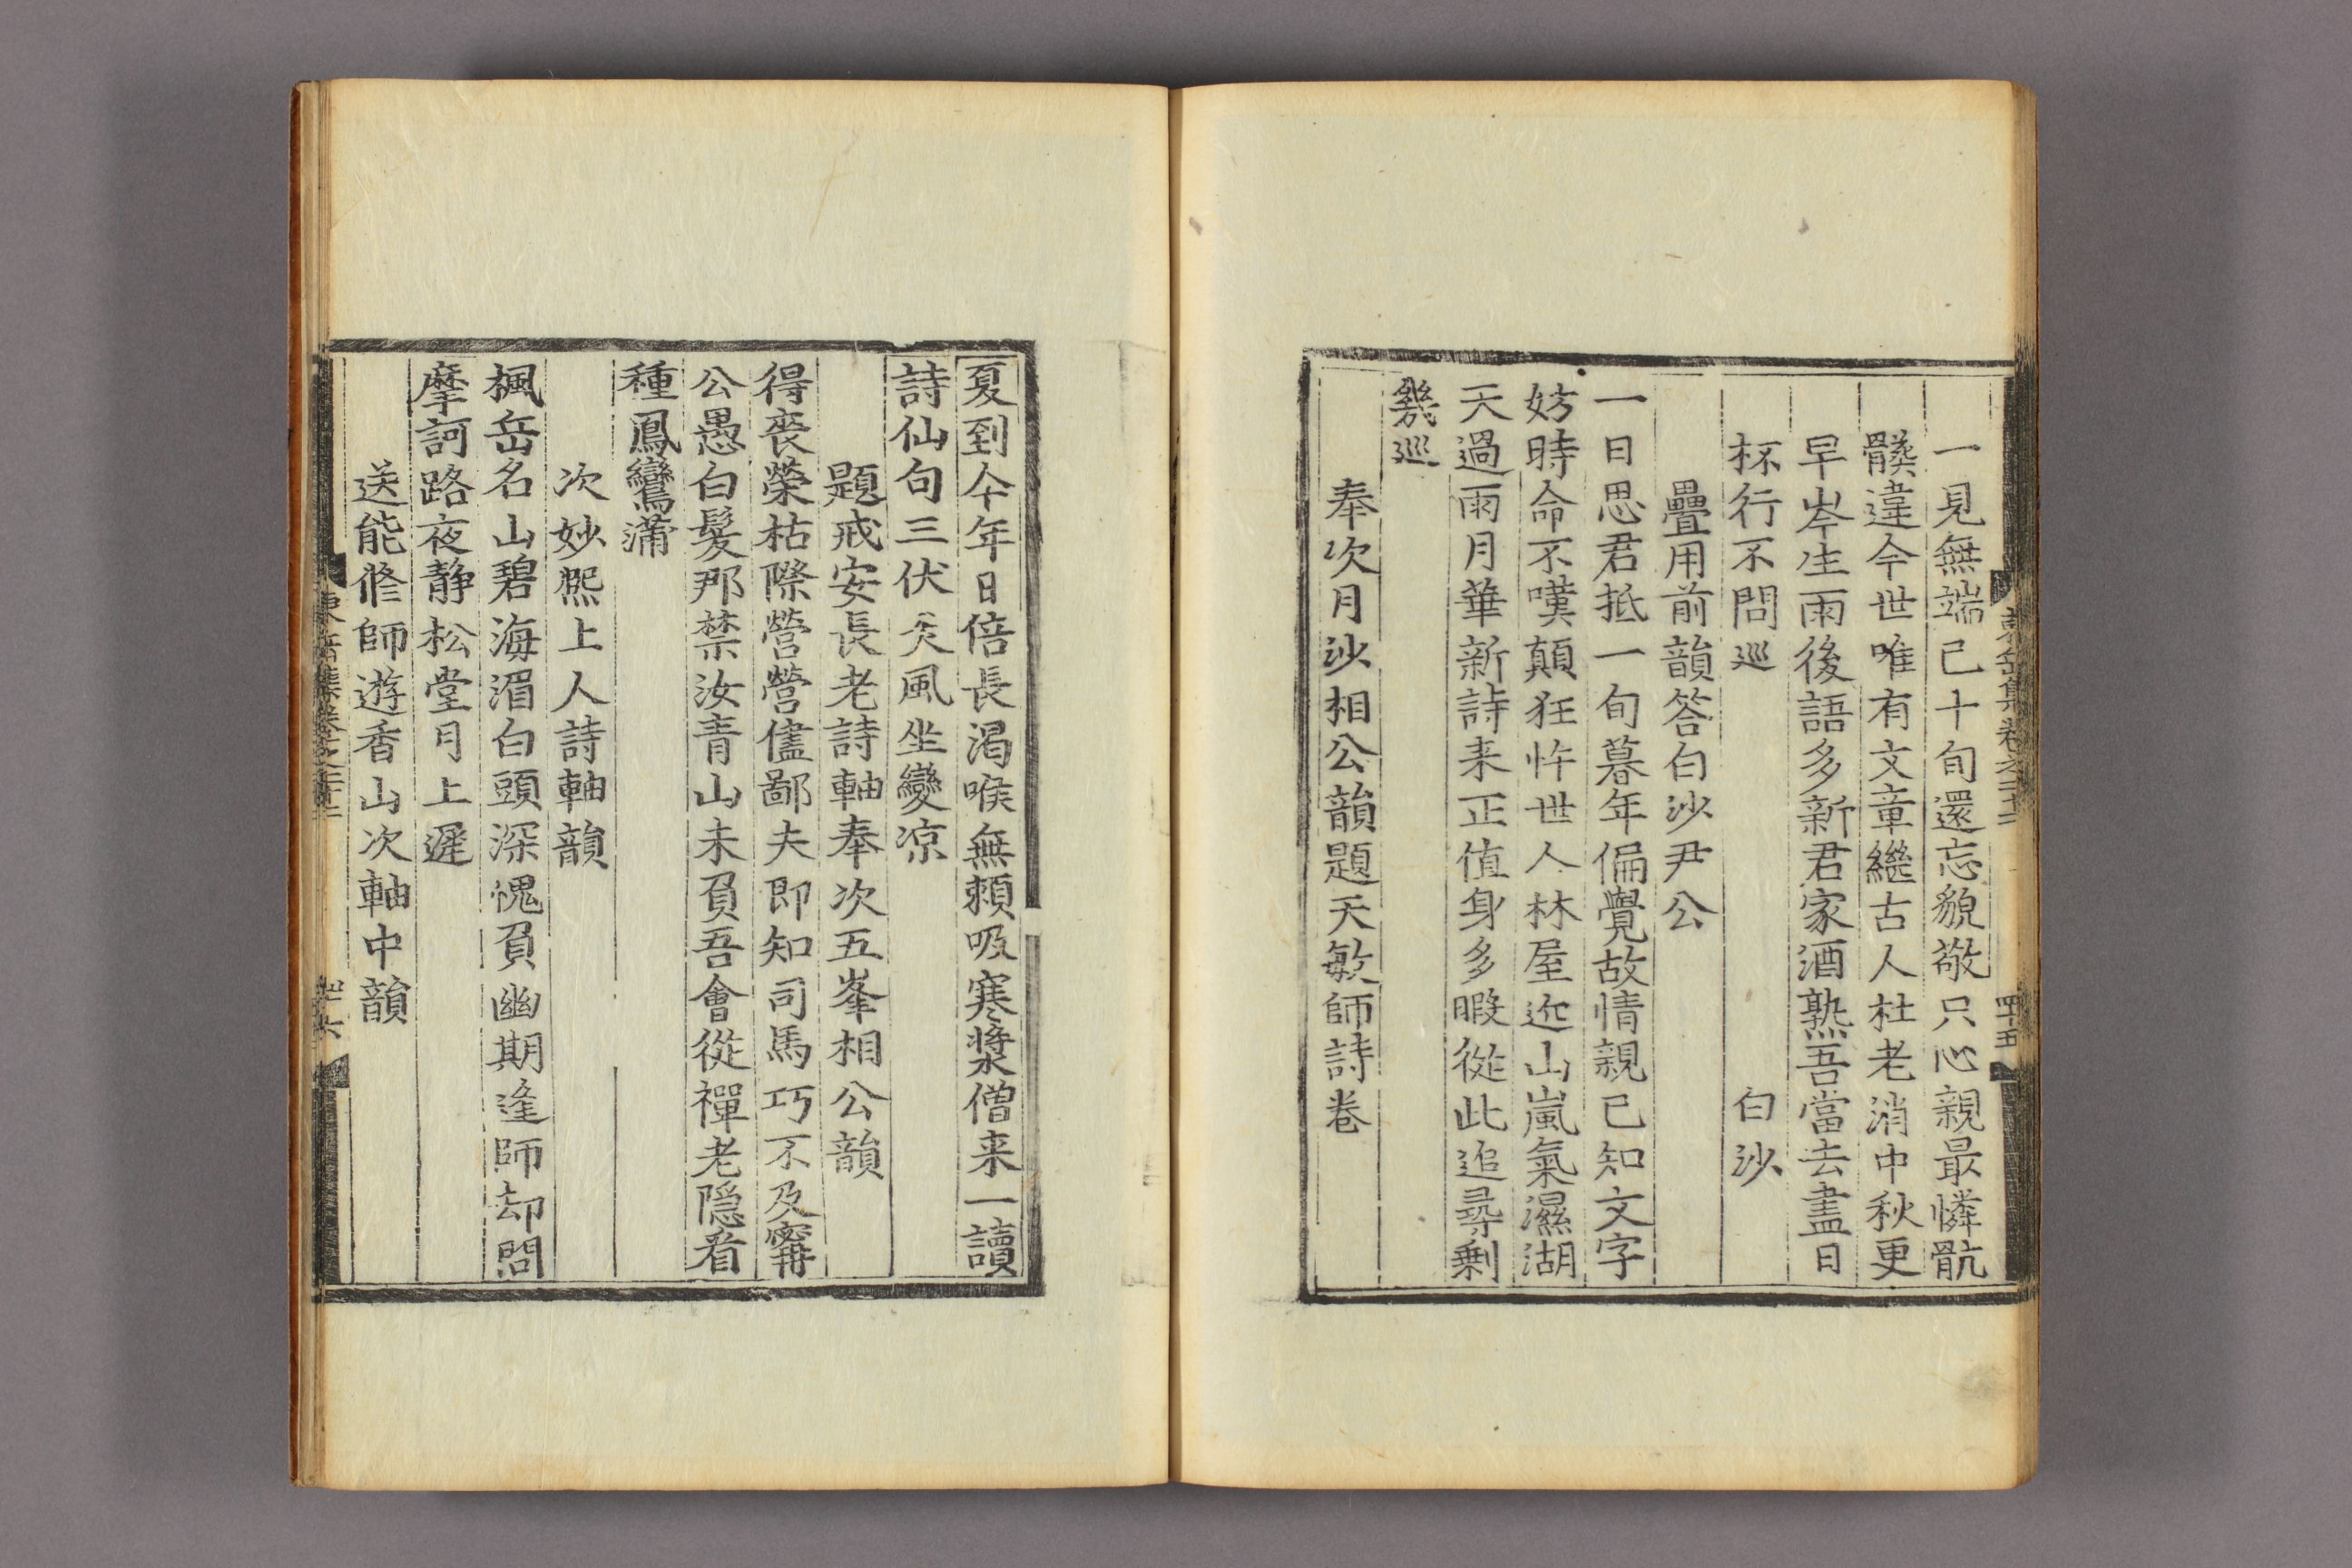 一見無端已十旬還忘貌敬只心親最憐骯
髒違今世唯有文章繼古人杜老消中秋更
早岑生雨後語多新君家酒熟吾當去盡日
杯行不問巡 白沙
疊用前韻答白沙尹公
一日思君抵一旬暮年偏覺故情親已知文字
妨時命不嘆顛狂忤世人林屋近山嵐氣濕湖
天過雨月華新詩来正值身多暇從此追尋剩
幾巡
奉次月沙相公韻題天敏師詩卷
夏到今年日倍長渴喉無賴吸寒漿僧来一讀
詩仙句三伏炎風坐變凉
題戒安長老詩軸奉次五峯相公韻
得喪榮枯際營營儘鄙夫即知司馬巧不及甯
公愚白髮那禁汝青山未負吾會從禪老隠看
種鳳鸞蒲
次妙熙上人詩軸韻
楓岳名山碧海湄白頭深愧負幽期逢師却問
摩訶路夜静松堂月上遲
送能修師遊香山次軸中韻
東岳集卷之二十二
四十五
東岳集卷之二十二
四十六